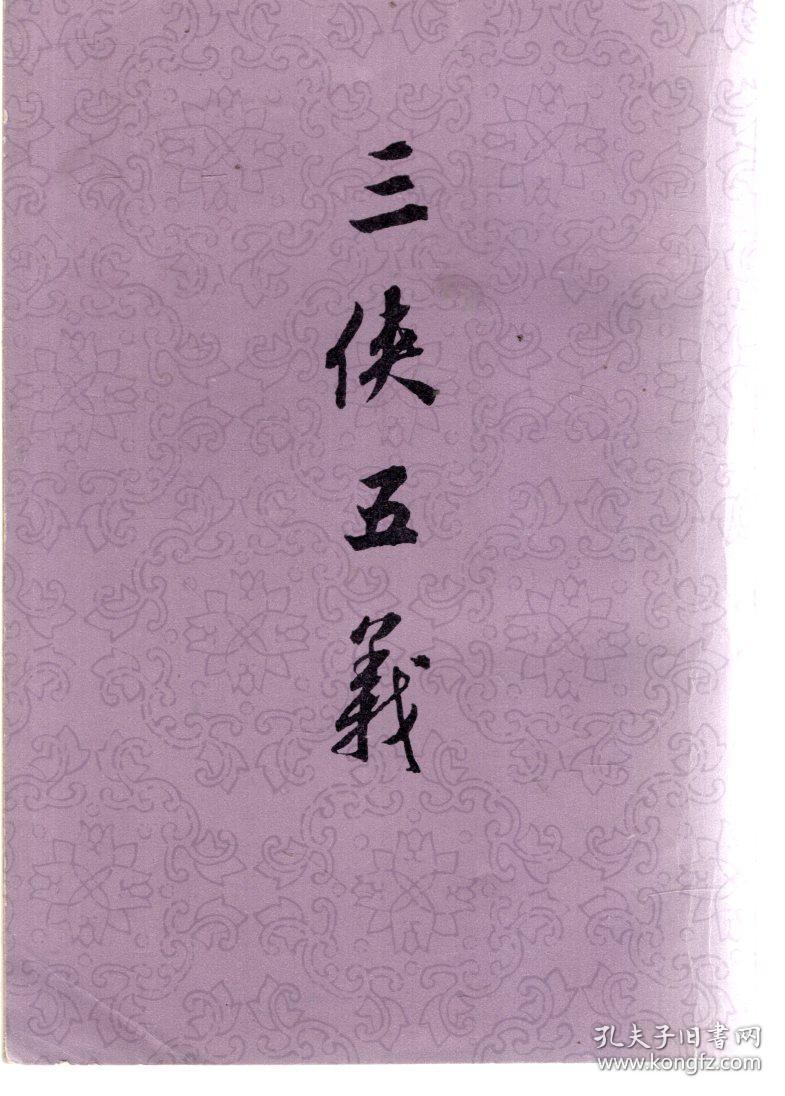 三侠五義
孔夫子旧书网
www.kongfz.com